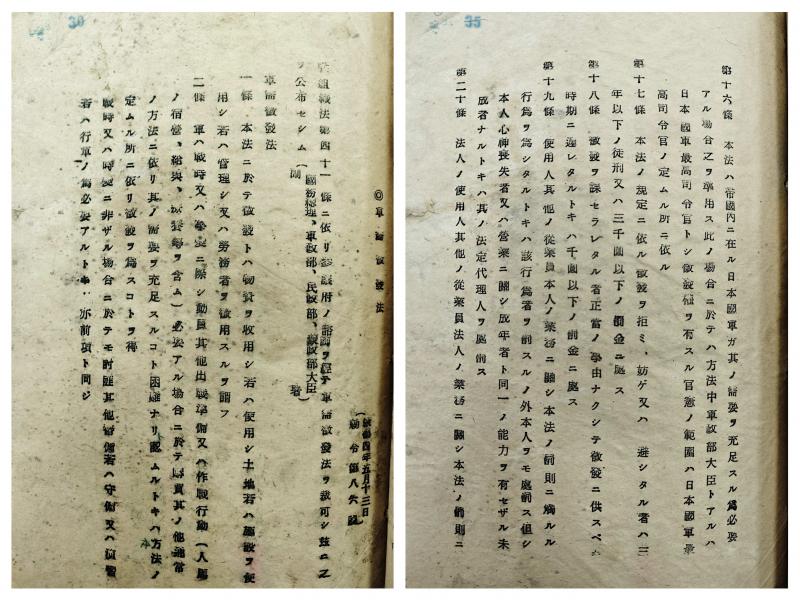 30
◎軍需徵發法
(康德四年五月十三日
勅令第八六號)
組織法第四十一條ニ依リ參議府ノ諮詢ヲ經テ軍需徵發法ヲ裁可シ玆ニ之
ヲ公布セシム
國務總理、軍政部、民政部、財政部大臣
署)
軍需徵發法
一條 本法ニ於テ徵發トハ物資ヲ收用シ若ハ使用シ土地若ハ施設ヲ使
用シ若ハ管理シ又ハ勞務者ヲ徵用スルヲ謂フ
二條 軍ハ戰時又ハ事變ニ際シ動員其他出戰準備又ハ作戰行動(人馬
ノ宿營、給與、ヲ含ム)必要アル場合ニ於テ購買其ノ他通常
ノ方法ニ依リ其ノ需要ヲ充足スルコト困難ナリ認ムルトキハ方法ノ
定ムル所ニ依リ徵發ヲ爲スコトヲ得
戰時又ハ時變ニ非ザル場合ニ於テモ討匪其他警備若ハ守備又ハ演習
若ハ行軍ノ爲必要アルトキ亦前項ト同ジ
35
第十六條 本法ハ帝國內ニ在ル日本國軍ガ其ノ需要ヲ充足スル爲必要
アル場合之ヲ準用ス此ノ場合ニ於テハ方法中軍政部大臣トアルハ
日本國軍最高司令官トシ徵發權ヲ有スル官憲ノ範圍ハ日本國軍最
高司令官ノ定ムル所ニ依ル
第十七條 本法ノ規定ニ依ル徵發ヲ拒ミ、妨ゲ又ハ避シタル者ハ三
年以下ノ徒刑又ハ三千圓以下ノ罰金ニ處ス
第十八條 徵發ヲ課セラレタル者正當ノ事由ナクシテ徵發ニ供スベキ
時期ニ遲レタルトキハ千圓以下ノ罰金ニ處ス
第十九條 使用人其他ノ從業員本人ノ業務ニ關シ本法ノ罰則ニ觸ルル
行爲ヲ爲シタルトキハ該行爲者ヲ罰スルノ外本人ヲモ處罰ス但シ
本人心神喪失者又ハ營業ニ關シ成年者ト同一ノ能力ヲ有セザル未
成者ナルトキハ其ノ法定代理人ヲ處罰ス
第二十條 法人ノ使用人其他ノ從業員法人ノ業務ニ關シ本法ノ罰則ニ